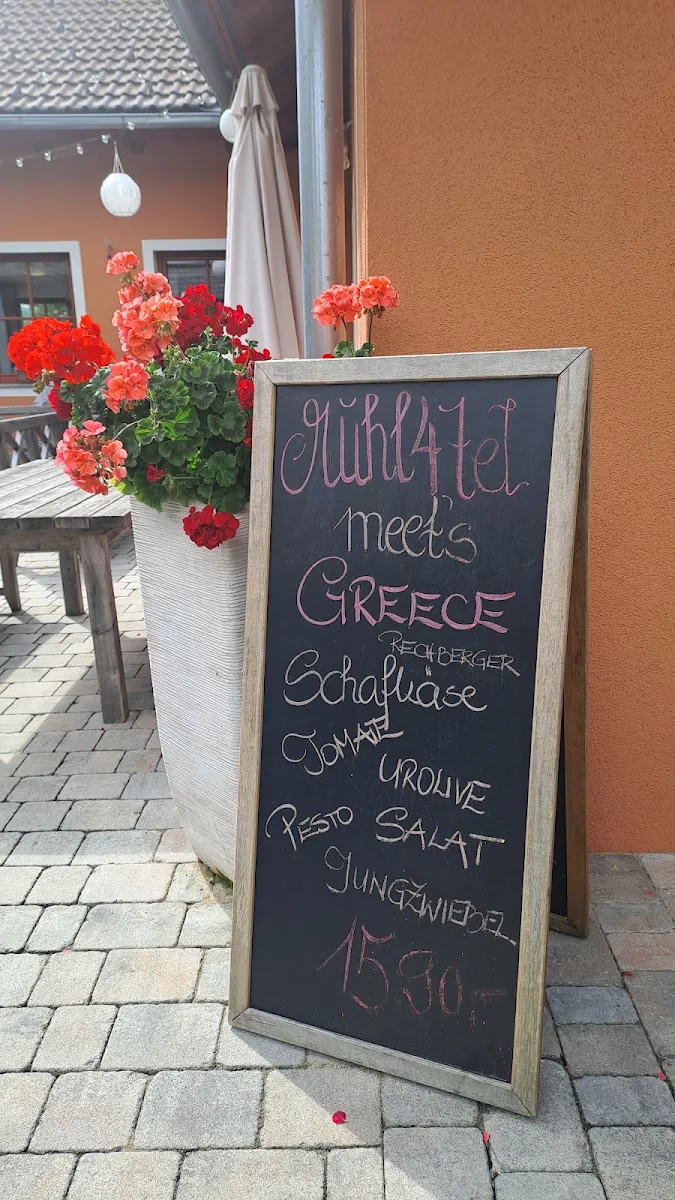 Mühl47el
meet's
GREECE
RECHBERGER
Schafkäse
TOMATE
UROLIVE
PESTO SALAT
JUNGZWIEBEL
15.90,-